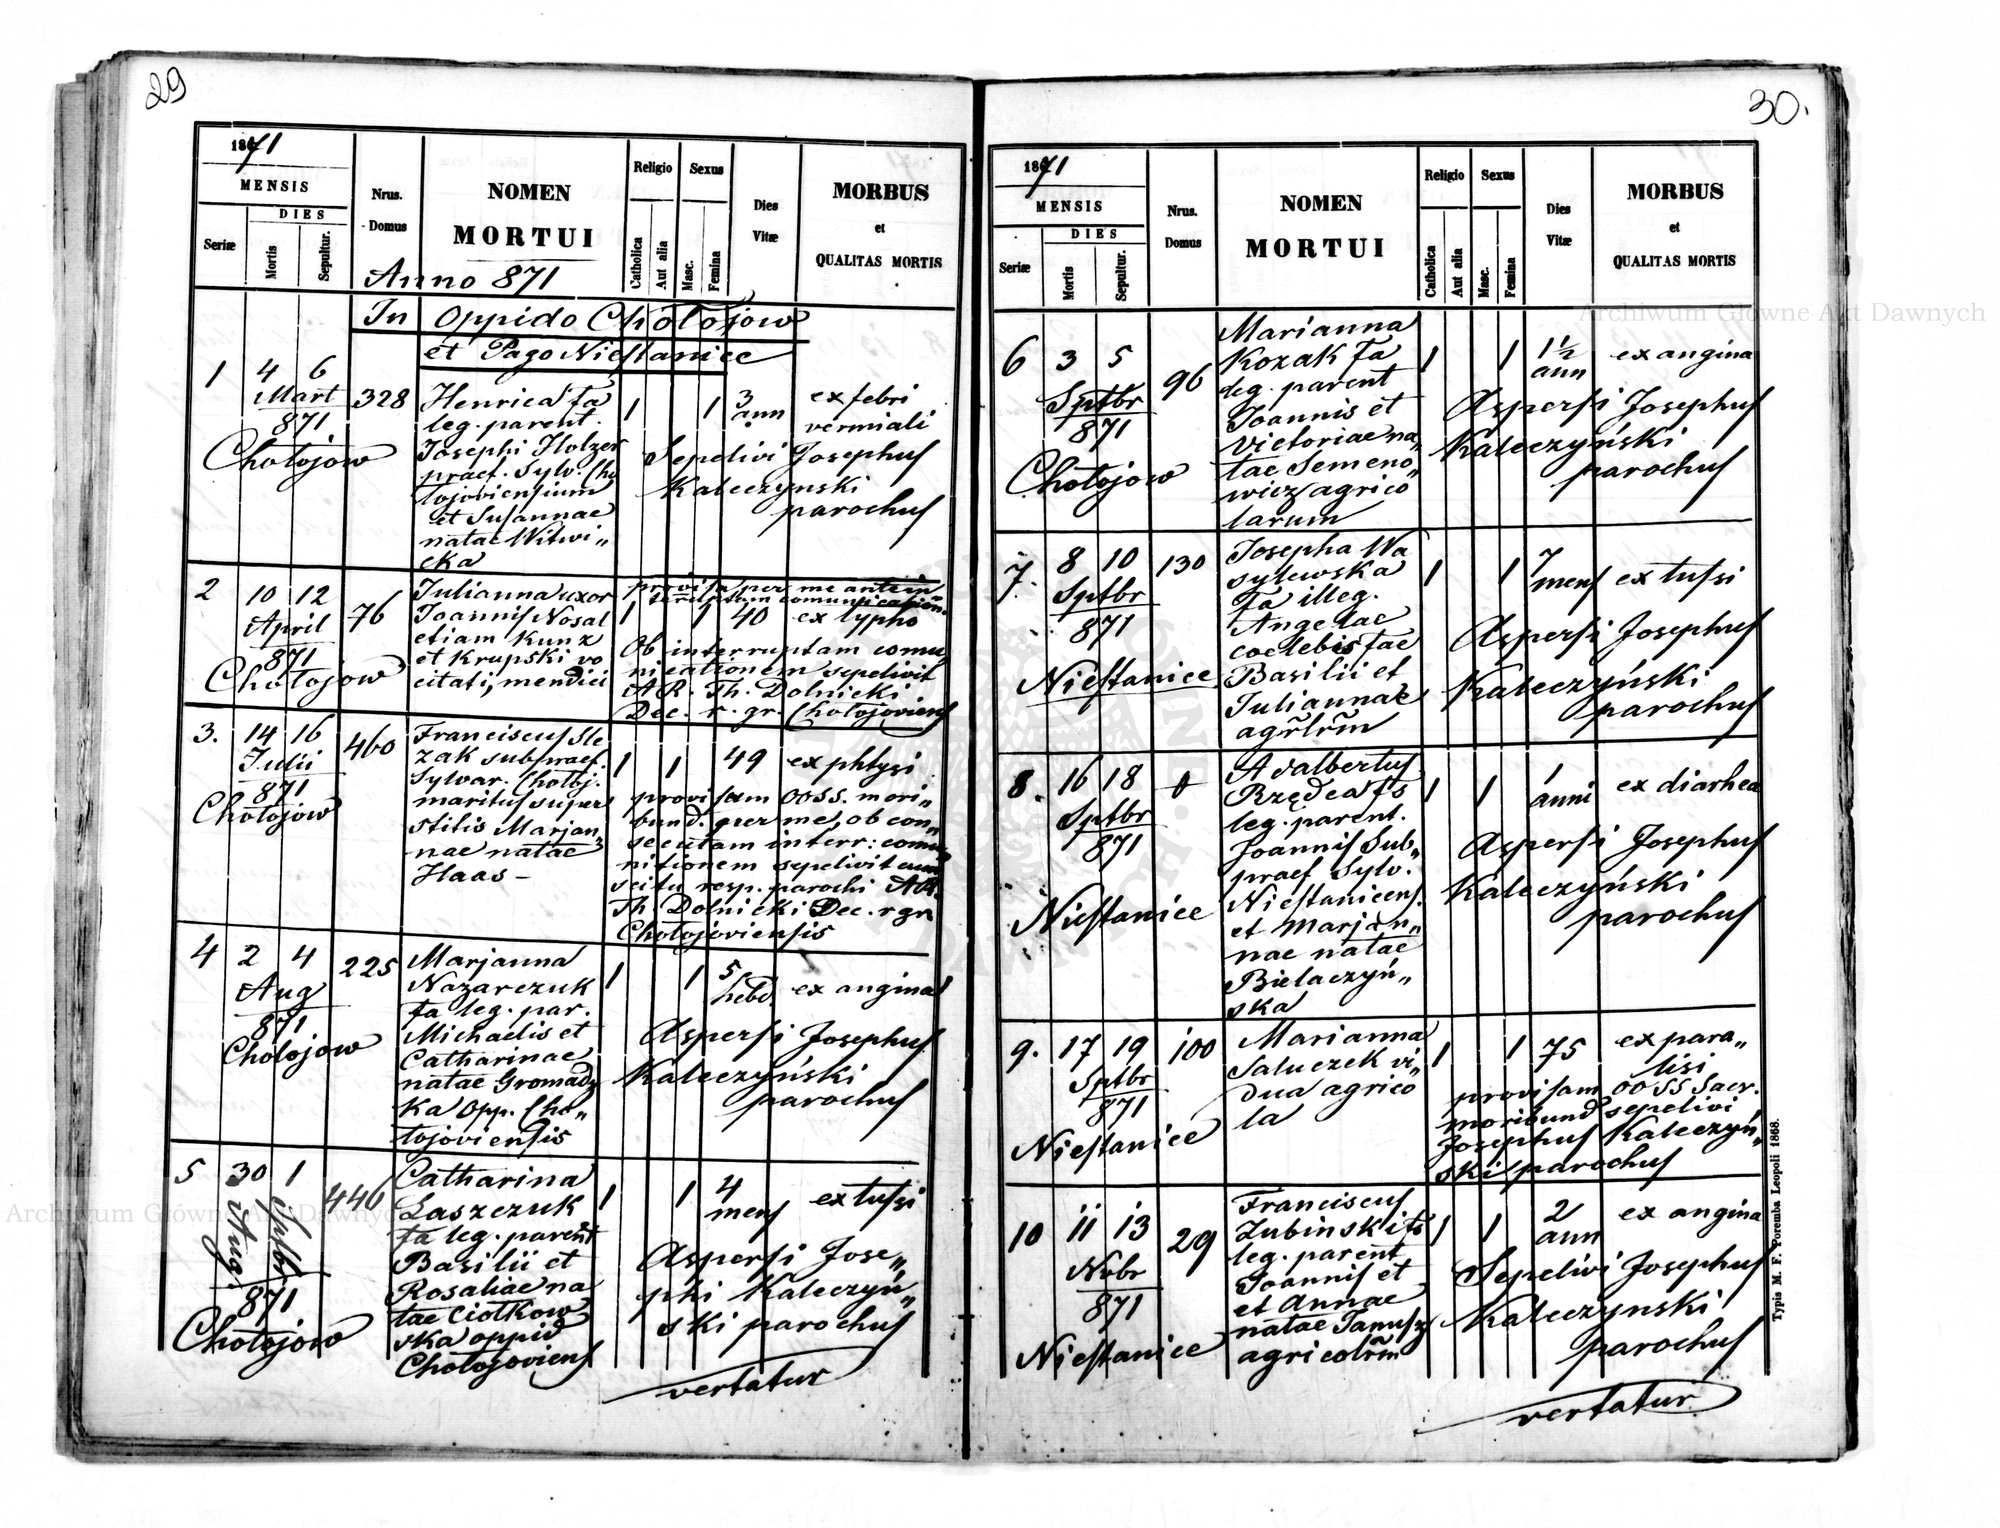 29
1871
MENSIS
DIES
Seriæ
Mortis
Sepultur.
Nrus.
Domus
NOMEN
MORTUI
Religio
Catholica
Aut alia
Sexus
Masc.
Femina
Dies
Vitæ
MORBUS
et
QUALITAS MORTIS
Anno 871
In Oppido Chołojow
et Pago Niestanice
1 4 6
Mart
871
Chołojow
328
Henrica fa
leg. parent.
Josephi Holzer
praef. Sylv. Cho
łojoviensium
et Susannae
natae Witwi„
cka
1 1 3
ann
ex febri
vermiali
Sepelivi Josephus
Kaleczynski
parochus
2 10 12
April
871
Chołojow
76
Julianna uxor
Joannis Nosal
etiam Kunz
et Krupski vo
citati, mendici
provisa per me ante in
terruptam comunicatiōn.
1 1 40 ex typho
Ob interruptam comu„
nicationem sepelivit
A R. Th. Dolnicki
Dec. r. gr. Chołojoviens
3. 14 16
Julii
871
Chołojow
460
Franciscus Sle
zak subpraef.
Sylvar. Chołoj.
maritus super
stitis Marjan„
nae natae
Haas –
1 1 49 ex phtysi
provisam OOSS. mori„
bund. per me, ob con„
secutam interr: comu
nitionem sepelivit cum
scitu resp. parochi A.R.
Th. Dolnicki Dec. r gr
Chołojoviensis
4 2 4
Aug
871
Chołojow
225
Marjanna
Nazarczuk
fa leg. par.
Michaelis et
Catharinae
natae Gromadz
ka opp. Cho„
łojoviensis
1 1 5
hebd.
ex angina
Aspersi Josephus
Kaleczyński
parochus
5 30 1
Aug.
Sptbr
871
Chołojow
446
Catharina
Łaszczuk
fa leg. parent
Basilii et
Rosaliae na
tae Ciołkow„
ska oppid
Chołojoviens
1 1 4
mens
ex tussi
Aspersi Jose„
phi Kaleczyń„
ski parochus
vertatur
30.
1871
MENSIS
DIES
Seriæ
Mortis
Sepultur.
Nrus.
Domus
NOMEN
MORTUI
Religio
Catholica
Aut alia
Sexus
Masc.
Femina
Dies
Vitæ
MORBUS
et
QUALITAS MORTIS
6 3 5
Sptbr
871
Chołojow
96
Marianna
Kozak fa
leg. parent
Joannis et
Victoriae na„
tae Semeno„
wicz agrico
larum
1 1 1½
ann
ex angina
Aspersi Josephus
Kaleczyński
parochus
7. 8 10
Sptbr
871
Niestanice
130
Josepha Wa
sylewska
fa illeg.
Angelae
coelebis fae
Basilii et
Juliannae
agrlrm
1 1 7
mens
ex tussi
Aspersi Josephus
Kaleczyński
parochus
8. 16 18
Sptbr
871
Niestanice
Adalbertus
Rzędca fs
leg. parent.
Joannis Sub„
praef Sylv.
Niestanicens.
et Marjan„
nae natae
Bielaczyń„
ska
1 1 1
anni
ex diarhea
Aspersi Josephus
Kaleczyński
parochus
9. 17 19
Sptbr
871
Niestanice
100
Marianna
Saluczek vi„
dua agrico
la
1 1 75
ex para„
lisi
provisam OOSS Sacr.
moribund sepelivi
Josephus Kaleczyń„
ski parochus
10 11 13
Nvbr
871
Niestanice
29
Franciscus
Zubinski fs
leg. parent
Joannis et
et Annae
natae Janusz
agricolrm
1 1 2
ann
ex angina
Sepelivi Josephus
Kaleczynski
parochus
vertatur
Typis M. F. Poremba Leopoli 1868.
Archiwum Główne Akt Dawnych
Archiwum Główne Akt Dawnych